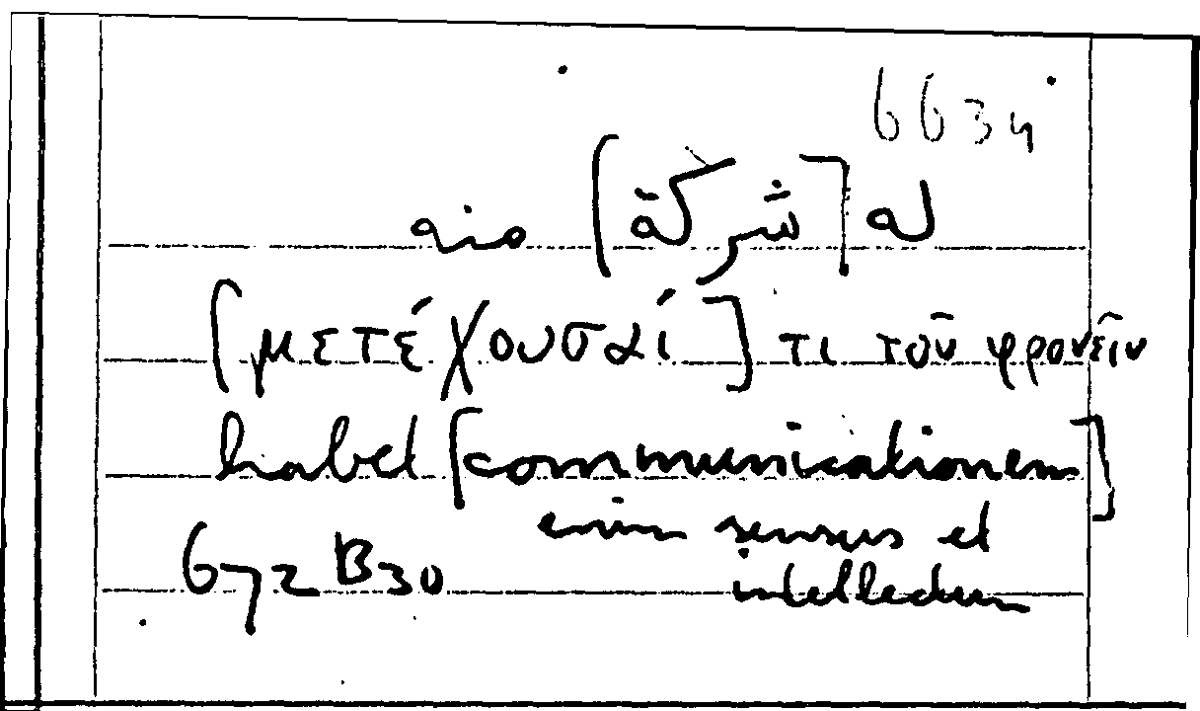 6634
له [شركة] منه
[μετέχουσαί] τι τοῦ φρονεῖν
habet [communicationem]
enim sensus et
intellectum
672 B30